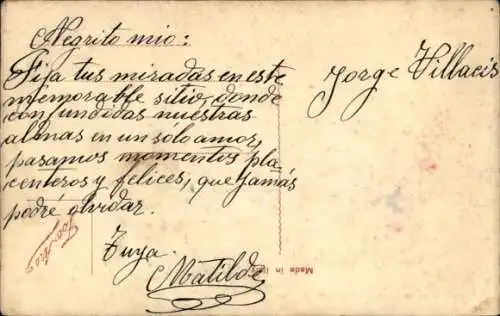 Negrito mio:
Fija tus miradas en este
memorable sitio, donde
confundidas nuestras
almas en un solo amor,
pasamos momentos pla-
centeros y felices, que jamás
podré olvidar.
Tuya.
Matilde
Jorge Villacis
Made in Italy